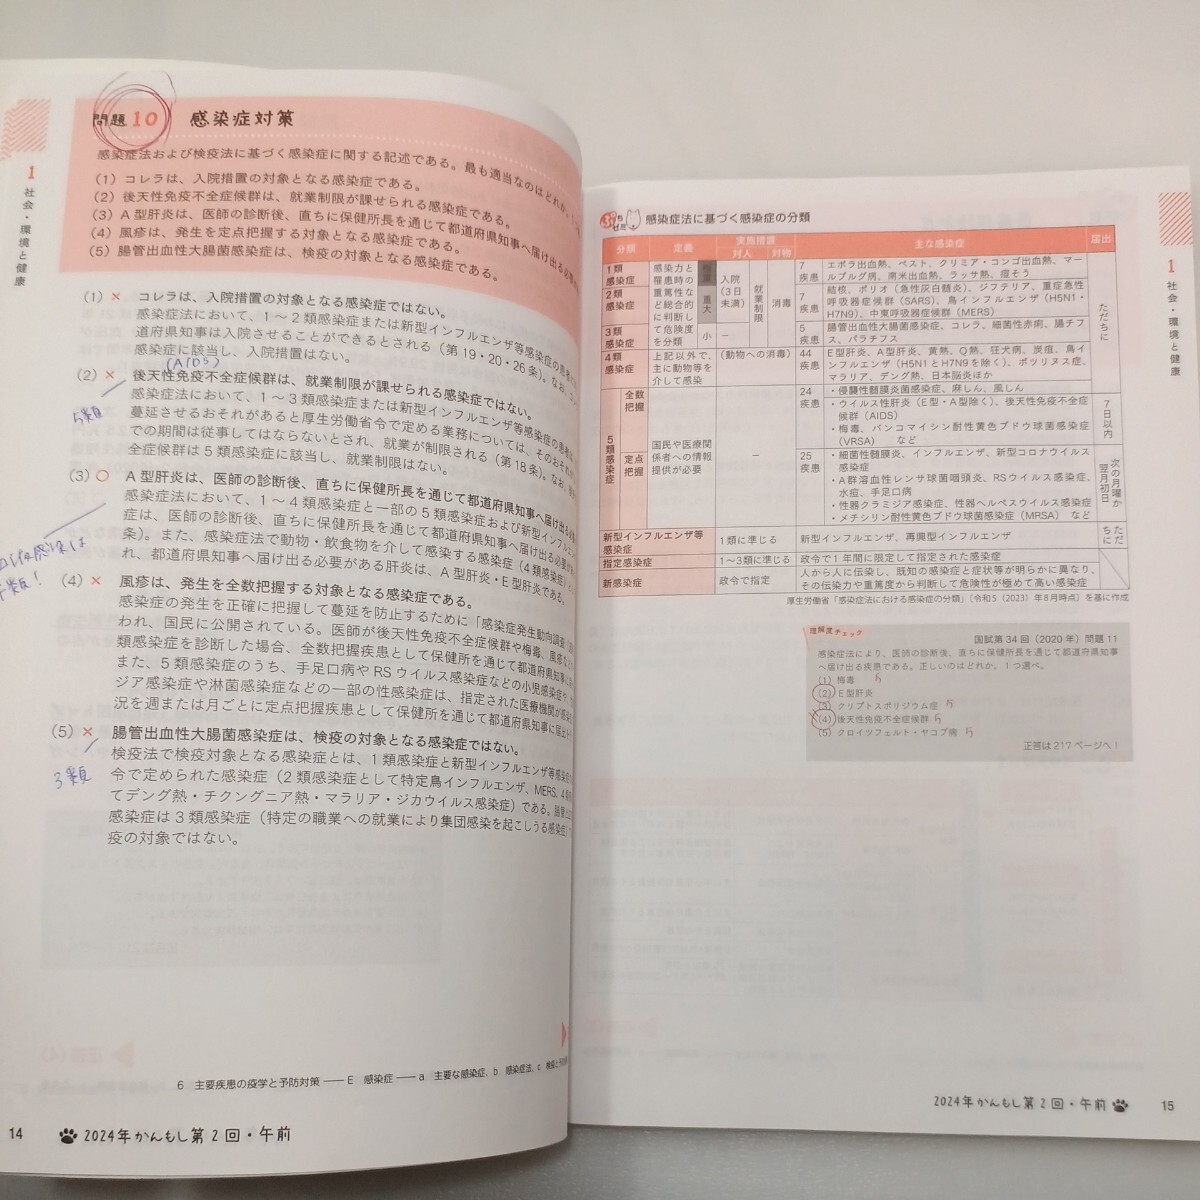 1
社会・環境と健康
問題10 感染症対策
感染症法および検疫法に基づく感染症に関する記述である。最も適当なのはどれか。
(1) コレラは、入院措置の対象となる感染症である。
(2) 後天性免疫不全症候群は、就業制限が課せられる感染症である。
(3) A型肝炎は、医師の診断後、直ちに保健所長を通じて都道府県知事へ届け出る必要
(4) 風疹は、発生を定点把握する対象となる感染症である。
(5) 腸管出血性大腸菌感染症は、検疫の対象となる感染症である。
(1) × コレラは、入院措置の対象となる感染症ではない。
感染症法において、1～2類感染症または新型インフルエンザ等感染症の患者に
道府県知事は入院させることができるとされる（第19・20・26条）。なお、コレ
感染症に該当し、入院措置はない。
(AIDS)
(2) × 後天性免疫不全症候群は、就業制限が課せられる感染症ではない。
感染症法において、1～3類感染症または新型インフルエンザ等感染症の患者
5類
蔓延させるおそれがあると厚生労働省令で定める業務については、そのおそれが
での期間は従事してはならないとされ、就業が制限される（第18条）。なお、後天
全症候群は5類感染症に該当し、就業制限はない。
(3) ○ A型肝炎は、医師の診断後、直ちに保健所長を通じて都道府県知事へ届け出る必要
感染症法において、1～4類感染症と一部の5類感染症および新型インフルエン
症は、医師の診断後、直ちに保健所長を通じて都道府県知事に届け出る必要
条）。また、感染症法で動物・飲食物を介して感染する感染症（4類感染症）と
れ、都道府県知事へ届け出る必要がある肝炎は、A型肝炎・E型肝炎である。
(4) × 風疹は、発生を全数把握する対象となる感染症である。
感染症の発生を正確に把握して蔓延を防止するために「感染症発生動向調査
われ、国民に公開されている。医師が後天性免疫不全症候群や梅毒、風疹など
類感染症を診断した場合、全数把握疾患として保健所を通じて都道府県知事に
また、5類感染症のうち、手足口病やRSウイルス感染症などの小児感染症や、
ジア感染症や淋菌感染症などの一部の性感染症は、指定された医療機関が
況を週または月ごとに定点把握疾患として保健所を通じて都道府県知事に届出
(5) × 腸管出血性大腸菌感染症は、検疫の対象となる感染症ではない。
検疫法で検疫対象となる感染症とは、1類感染症と新型インフルエンザ等感染症
3類
令で定められた感染症（2類感染症として特定鳥インフルエンザ、MERS、4類
てデング熱・チクングニア熱・マラリア・ジカウイルス感染症）である。腸管出血
感染症は3類感染症（特定の職業への就業により集団感染を起こしうる感染症）
疫の対象ではない。
6 主要疾患の疫学と予防対策 ― E 感染症 ― a 主要な感染症、b 感染症法、c 検疫と予防
14
2024年かんもし第2回・午前
ぷちぜミ
感染症法に基づく感染症の分類
分類 定義 実施措置 主な感染症 届出
対人 対物
1類感染症
2類感染症
3類感染症
感染力と罹患時の重篤性など総合的に判断して危険度を分類
重大
小
入院（3日未満）
就業制限
消毒
－
7疾患 エボラ出血熱、ペスト、クリミア・コンゴ出血熱、マー
ルブルグ病、南米出血熱、ラッサ熱、痘そう
7疾患 結核、ポリオ（急性灰白髄炎）、ジフテリア、重症急性
呼吸器症候群（SARS）、鳥インフルエンザ（H5N1・
H7N9）、中東呼吸器症候群（MERS）
5疾患 腸管出血性大腸菌感染症、コレラ、細菌性赤痢、腸チフ
ス、パラチフス
ただちに
4類感染症 上記以外で、主に動物等を介して感染 （動物への消毒） 44疾患 E型肝炎、A型肝炎、黄熱、Q熱、狂犬病、炭疽、鳥イ
ンフルエンザ（H5N1とH7N9を除く）、ボツリヌス症、
マラリア、デング熱、日本脳炎ほか
5類感染症 全数把握 24疾患 ・侵襲性髄膜炎菌感染症、麻しん、風しん
・ウイルス性肝炎（E型・A型除く）、後天性免疫不全症
候群（AIDS）
・梅毒、バンコマイシン耐性黄色ブドウ球菌感染症
（VRSA） など
7日以内
定点把握 国民や医療関係者への情報提供が必要 －
25疾患 ・細菌性髄膜炎、インフルエンザ、新型コロナウイルス
感染症
・A群溶血性レンサ球菌咽頭炎、RSウイルス感染症、
水痘、手足口病
・性器クラミジア感染症、性器ヘルペスウイルス感染症
・メチシリン耐性黄色ブドウ球菌感染症（MRSA） など
次の月曜か翌月初日
新型インフルエンザ等感染症 1類に準じる 新型インフルエンザ、再興型インフルエンザ ただちに
指定感染症 1～3類に準じる 政令で1年間に限定して指定された感染症
新感染症 政令で指定 人から人に伝染し、既知の感染症と症状等が明らかに異なり、
その伝染力や重篤度から判断して危険性が極めて高い感染症
厚生労働省「感染症法における感染症の分類」〔令和5（2023）年8月時点〕を基に作成
理解度チェック
国試第34回（2020年）問題11
感染症法により、医師の診断後、直ちに保健所長を通じて都道府県知事
へ届け出る疾患である。正しいのはどれか。1つ選べ。
(1) 梅毒 5
(2) E型肝炎
(3) クリプトスポリジウム症 5
(4) 後天性免疫不全症候群 5
(5) クロイツフェルト・ヤコブ病 5
正答は217ページへ！
1
社会・環境と健康
2024年かんもし第2回・午前
15